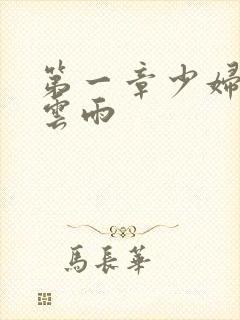 第一章少婦
雲雨
馬長華